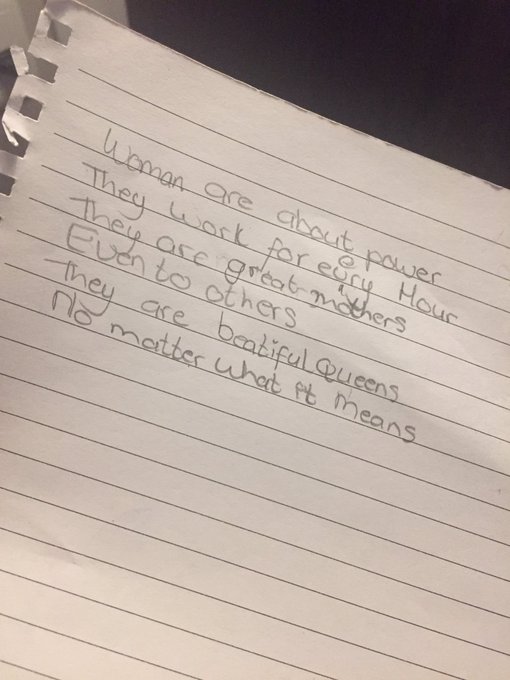 Woman are about power
They work for eury Hour
They are great mothers
Even to others
They are beatiful Queens
No matter what it means